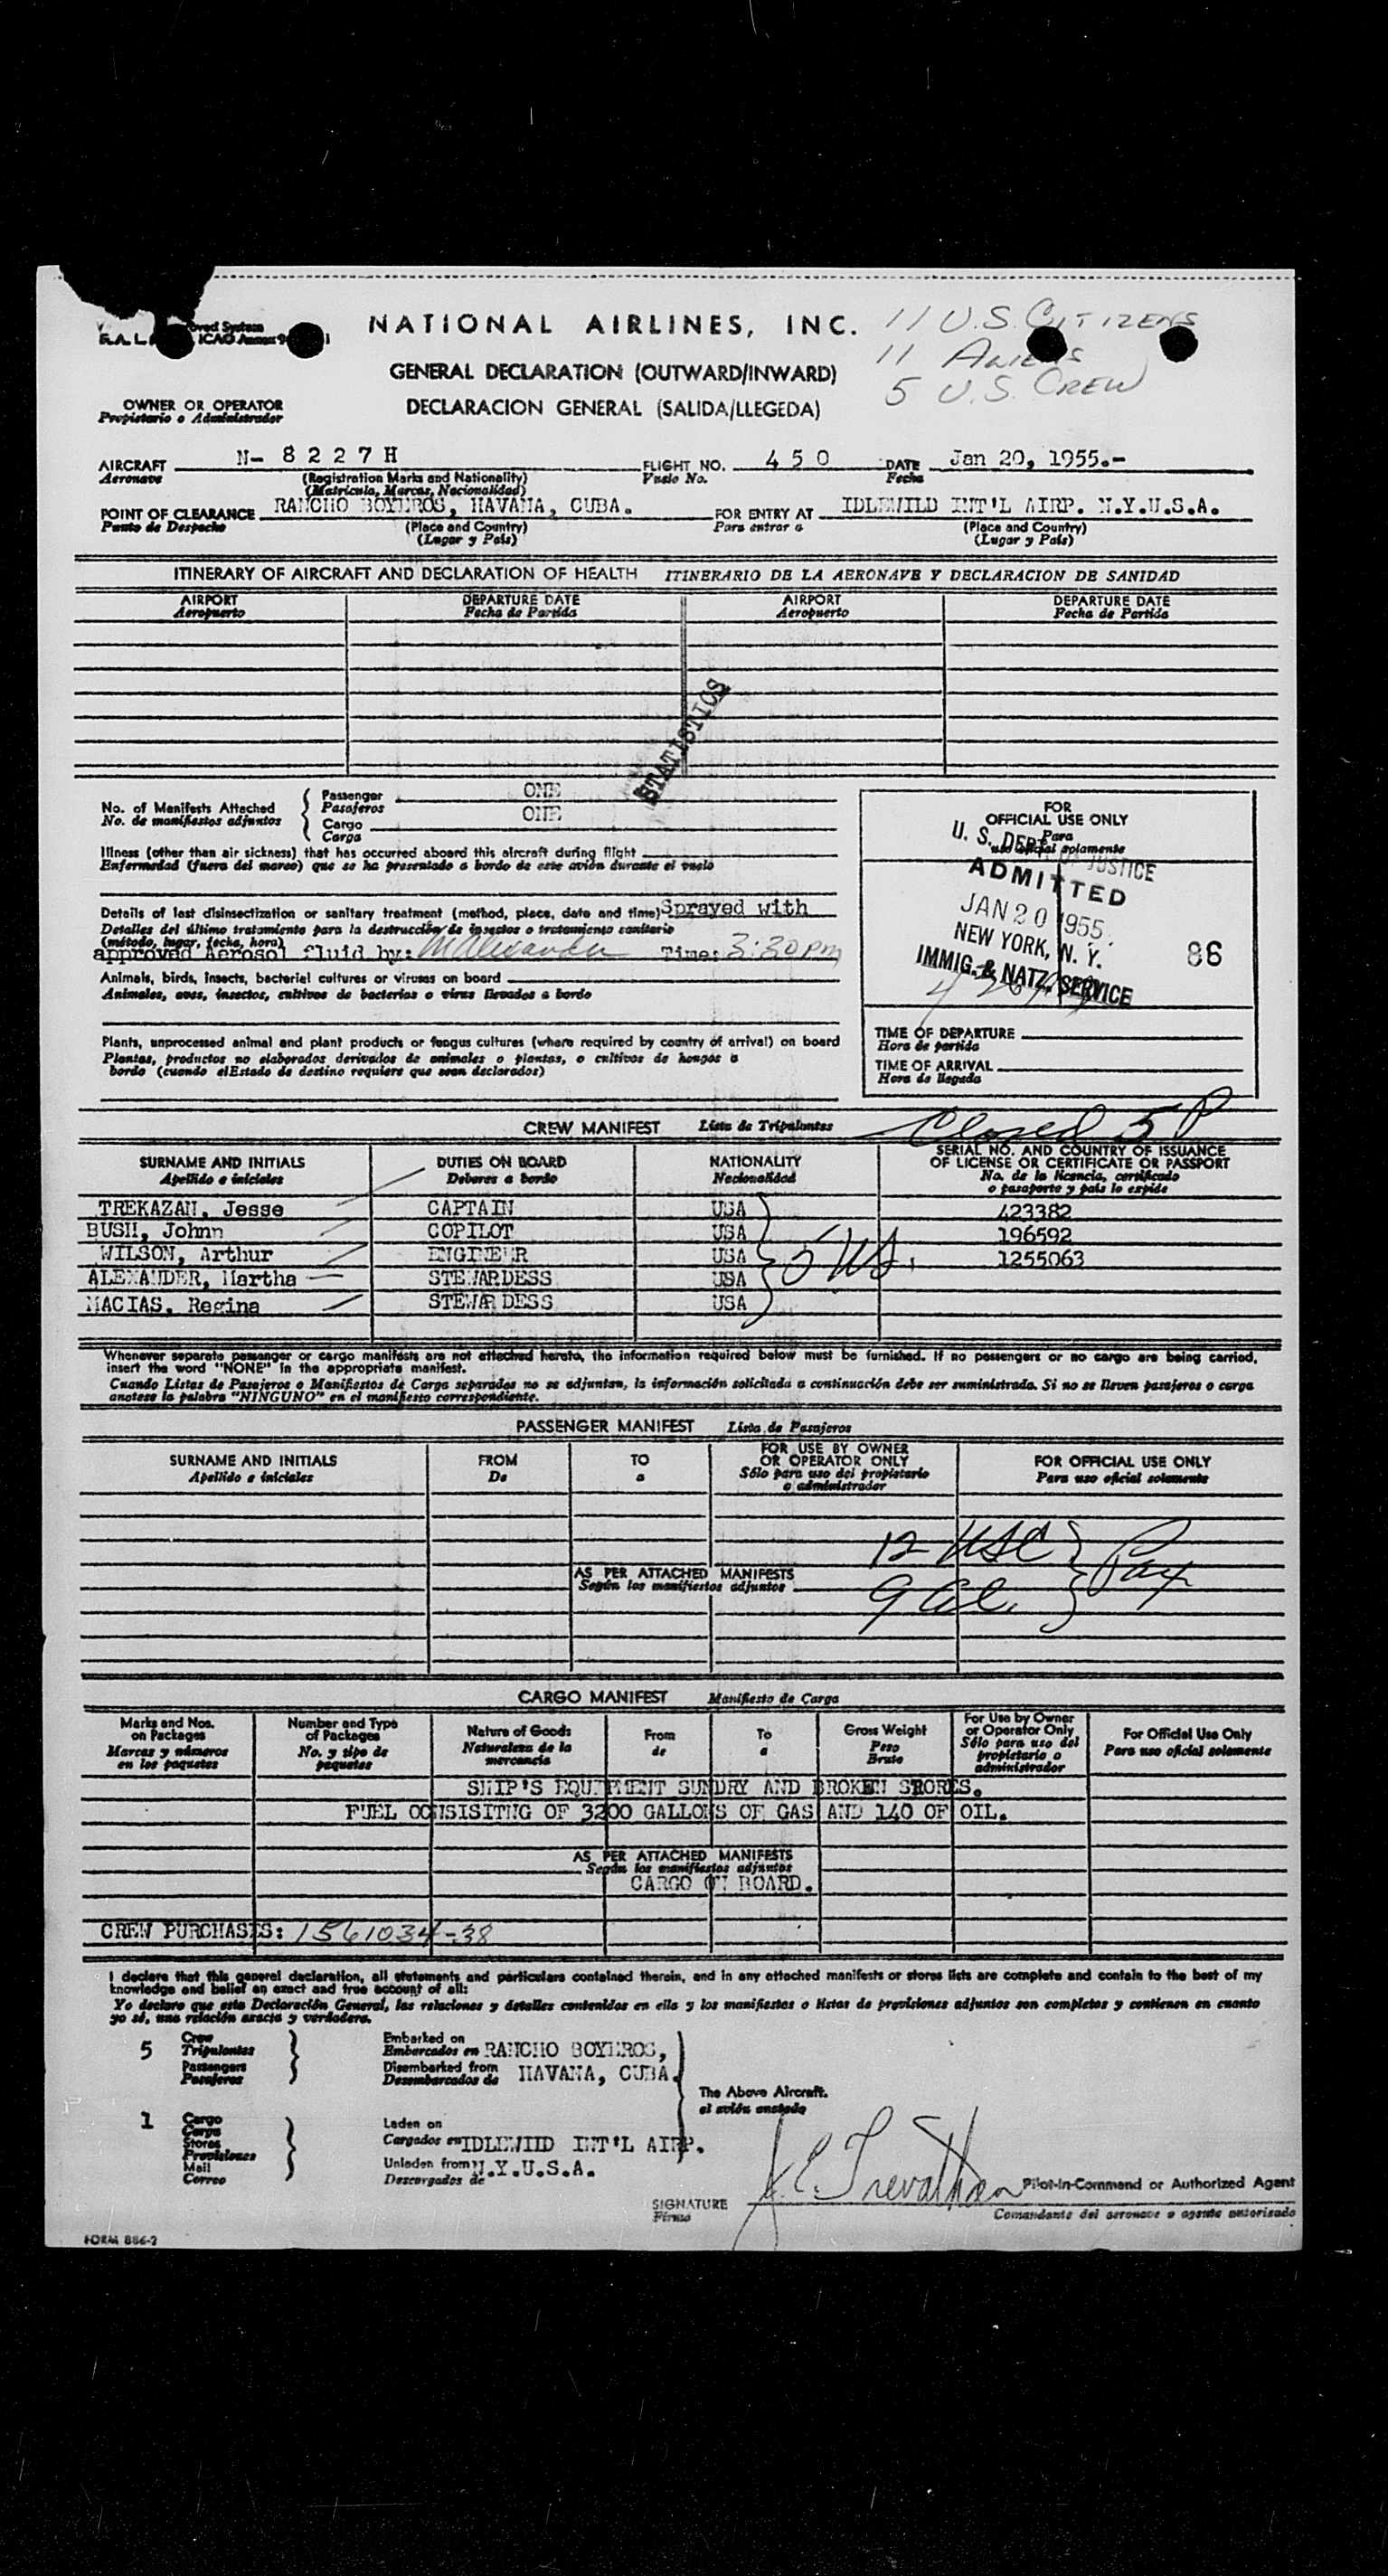 NATIONAL AIRLINES, INC.
11 U.S. CITIZENS
11 ALIENS
5 U.S. CREW
ICAO Annex 9
GENERAL DECLARATION (OUTWARD/INWARD)
DECLARACION GENERAL (SALIDA/LLEGEDA)
OWNER OR OPERATOR
Propietario o Administrador
AIRCRAFT N- 8 2 2 7 H FLIGHT NO. 4 5 0 DATE Jan 20, 1955.-
Aeronave (Registration Marks and Nationality) Vuelo No. Fecha
(Matricula, Marcas, Nacionalidad)
POINT OF CLEARANCE RANCHO BOYEROS, HAVANA, CUBA. FOR ENTRY AT IDLEWILD INT'L AIRP. N.Y.U.S.A.
Punto de Despacho (Place and Country) Para entrar a (Place and Country)
(Lugar y País) (Lugar y País)
ITINERARY OF AIRCRAFT AND DECLARATION OF HEALTH ITINERARIO DE LA AERONAVE Y DECLARACION DE SANIDAD
AIRPORT DEPARTURE DATE AIRPORT DEPARTURE DATE
Aeropuerto Fecha de Partida Aeropuerto Fecha de Partida
STATISTICS
No. of Manifests Attached Passenger ONE
No. de manifiestos adjuntos Pasajeros
Cargo ONE
Carga
Illness (other than air sickness) that has occurred aboard this aircraft during flight
Enfermedad (fuera del mareo) que se ha presentado a bordo de este avión durante el vuelo
Details of last disinsectization or sanitary treatment (method, place, date and time) Sprayed with
Detalles del último tratamiento para la destrucción de insectos o tratamiento sanitario
(método, lugar, fecha, hora)
approved Aerosol fluid by: M Alexander Time: 3:30 PM
Animals, birds, insects, bacterial cultures or viruses on board
Animales, aves, insectos, cultivos de bacterias o virus llevados a bordo
Plants, unprocessed animal and plant products or fungus cultures (where required by country of arrival) on board
Plantas, productos no elaborados derivados de animales o plantas, o cultivos de hongos a
bordo (cuando elEstado de destino requiere que sean declarados)
FOR
OFFICIAL USE ONLY
Para
uso oficial solamente
U. S. DEPT. OF JUSTICE
ADMITTED
JAN 20 1955
NEW YORK, N. Y.
IMMIG. & NATZ. SERVICE
86
TIME OF DEPARTURE
Hora de partida
TIME OF ARRIVAL
Hora de llegada
Closed 5 P
CREW MANIFEST Lista de Tripulantes
SURNAME AND INITIALS DUTIES ON BOARD NATIONALITY SERIAL NO. AND COUNTRY OF ISSUANCE
OF LICENSE OR CERTIFICATE OR PASSPORT
Apellido e iniciales Deberes a bordo Nacionalidad No. de la licencia, certificado
o pasaporte y país lo expide
TREKAZAN, Jesse CAPTAIN USA 423382
BUSH, Johnn COPILOT USA 196592
WILSON, Arthur ENGINEER USA 1255063
ALEXAUDER, Martha STEWARDESS USA
MACIAS, Regina STEWAR DESS USA
5 US.
Whenever separate passenger or cargo manifests are not attached hereto, the information required below must be furnished. If no passengers or no cargo are being carried,
insert the word "NONE" in the appropriate manifest.
Cuando Listas de Pasajeros o Manifiestos de Carga separados no se adjuntan, la información solicitada a continuación debe ser suministrada. Si no se lleven pasajeros o carga
anotese la palabra "NINGUNO" en el manifiesto correspondiente.
PASSENGER MANIFEST Lista de Pasajeros
SURNAME AND INITIALS FROM TO FOR USE BY OWNER OR OPERATOR ONLY FOR OFFICIAL USE ONLY
Apellido e iniciales De a Sólo para uso del propietario o administrador Para uso oficial solamente
12 USC
AS PER ATTACHED MANIFESTS
Según los manifiestos adjuntos
9 Al. Pax
CARGO MANIFEST Manifiesto de Carga
Marks and Nos. on Packages Number and Type of Packages Nature of Goods From To Gross Weight For Use by Owner or Operator Only For Official Use Only
Marcas y números en los paquetes No. y tipo de paquetes Naturaleza de la mercancia de a Peso Bruto Sólo para uso del propietario o administrador Para uso oficial solamente
SHIP'S EQUIPMENT SUNDRY AND BROKEN STORES.
FUEL CONSISITNG OF 3200 GALLONS OF GAS AND 140 OF OIL.
AS PER ATTACHED MANIFESTS
Según los manifiestos adjuntos
CARGO ON BOARD.
CREW PURCHASES: 1561034-38
I declare that this general declaration, all statements and particulars contained therein, and in any attached manifests or stores lists are complete and contain to the best of my
knowledge and belief an exact and true account of all:
Yo declaro que esta Declaración General, las relaciones y detalles contenidos en ella y los manifiestos o listas de provisiones adjuntos son completos y contienen en cuanto
yo sé, una relación exacta y verdadera.
5 Crew Embarked on
Tripulantes Embarcados en RANCHO BOYEROS,
Passengers Disembarked from HAVANA, CUBA.
Pasajeros Desembarcados de
The Above Aircraft.
el avión anotado
1 Cargo Laden on
Carga
Stores Cargados en IDLEWIID INT'L AIRP.
Provisiones
Mail Unladen from N.Y.U.S.A.
Correo Descargados de
SIGNATURE J. E. Trevathan Pilot-in-Command or Authorized Agent
Firma Comandante del aeronave o agente autorizado
FORM 886-2